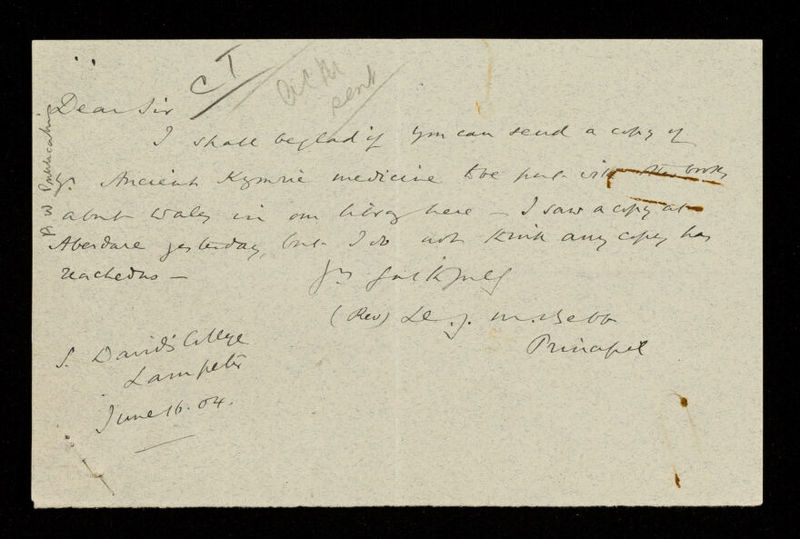 CT
ack
sent
B W Publication
Dear Sir
I shall be glad if you can send a copy of
yr. Ancient Kymric medicine to be put with other books
about Wales in our library here – I saw a copy at
Aberdare yesterday, but I do not think any copy has
reached us –
Yrs faithfully
(Rev) Ll. J. M. Bebb
Principal
S. David's College
Lampeter
June 16. 04.